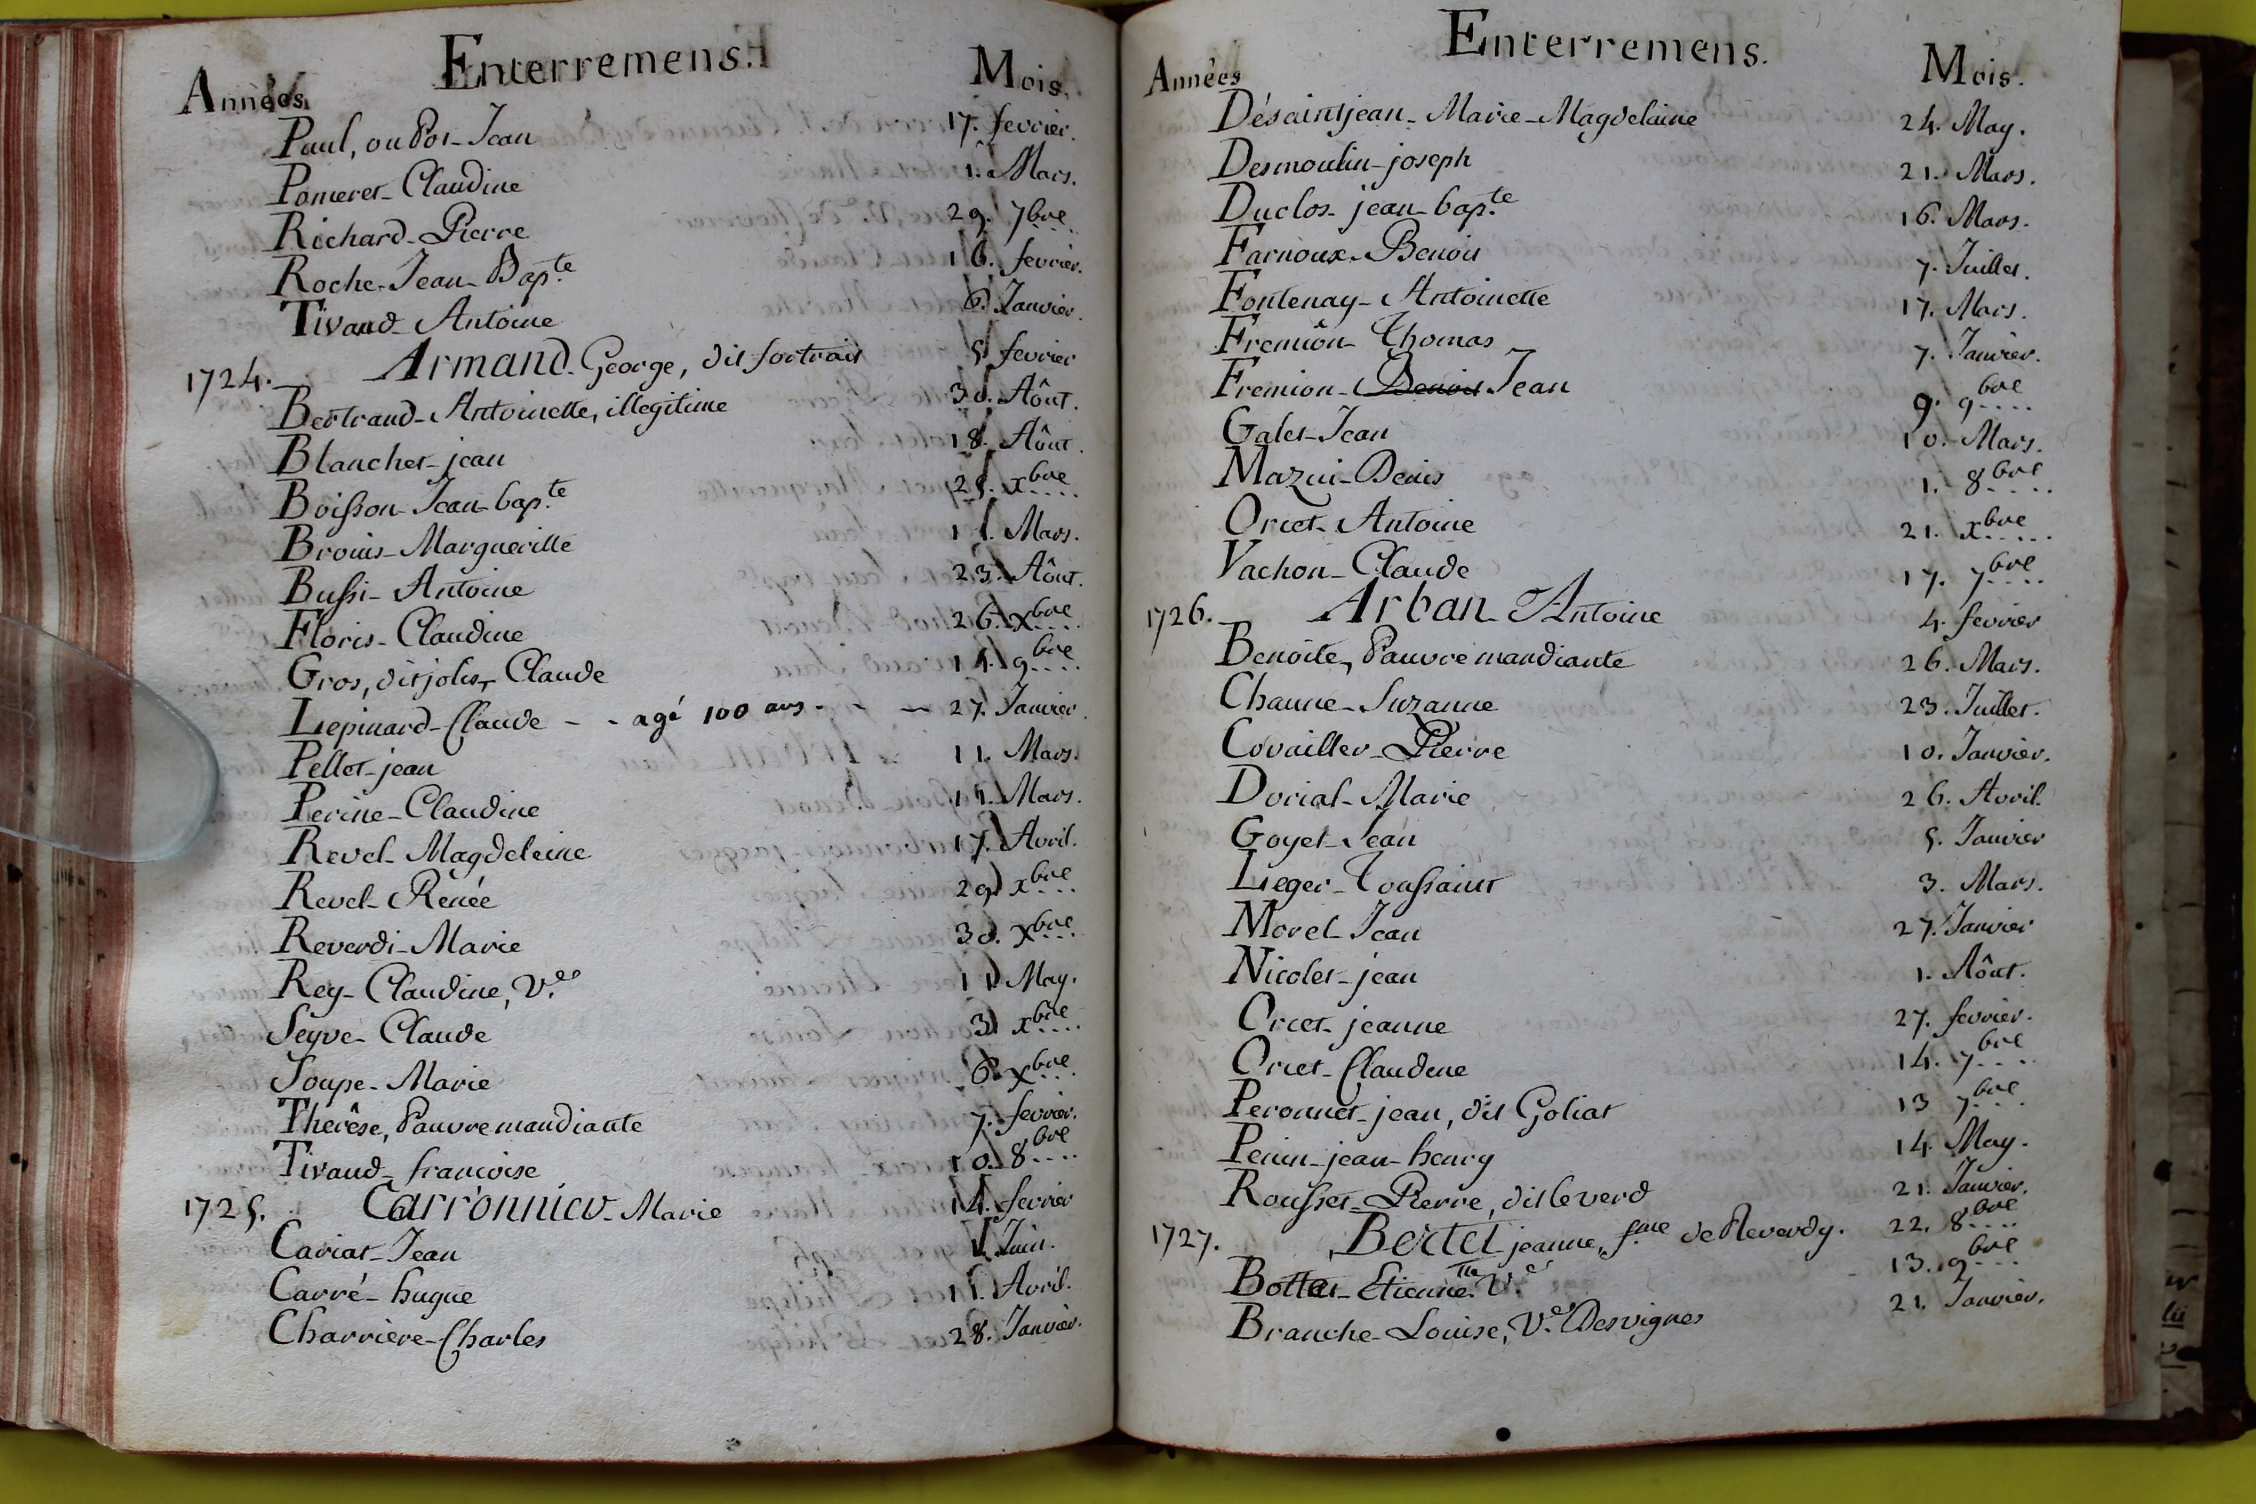 Enterremens.
Années Mois.
Paul, ou Pol - Jean 17. fevrier.
Pomeret - Claudine 1. Mars.
Richard - Pierre 29. 7bre
Roche - Jean - Bapte 16. fevrier.
Tivaud - Antoine 6. Janvier.
1724. Armand - George, dit fortrait 5 fevrier
Bertrand - Antoinette, illegitime 30. Aôut.
Blanchet - jean 18. Aôut.
Boisson - Jean - bapte 25. xbre
Brouis - Marguerille 11. Mars.
Bussi - Antoine 23. Aôut.
Floris - Claudine 26. xbre
Gros, dit jolis, Claude 15. 9bre
Lepinard - Claude - - agé 100 ans - - - 27. Janvier
Pellot - jean 11. Mars.
Perine - Claudine 15. Mars.
Revel - Magdeleine 17. Avril.
Revel - Renée 29 xbre
Reverdi - Marie 30. xbre
Rey - Claudine, Ve 11 May.
Seyve - Claude 3 xbre
Soupe - Marie 6. xbre
Therêse, Pauvre mandiante 7. fevrier.
Tivaud - francoise 10. 8bre
1725. Carronnier - Marie 14. fevrier
Cariat - Jean 1. Juin.
Carré - hugue 15. Avril.
Charriere - Charles 28. Janvier.
Enterremens.
Années Mois.
Désaintjean - Marie - Magdelaine 24. May.
Desmoulin - joseph 21. Mars.
Duclos - jean - bapte 16. Mars.
Farnoux - Benoit 7. Juillet.
Fontenay - Antoinette 17. Mars.
Fremion - Thomas 7. Janvier.
Fremion - Benoit Jean 9. 9bre
Galet - Jean 10. Mars.
Mazui - Denis 1. 8bre
Orcet - Antoine 21. xbre
Vachon - Claude 17. 7bre
1726. Arban - Antoine 4. fevrier
Benoite, Pauvre mandiante 26. Mars.
Chaune - Suzanne 23. Juillet.
Covailler - Pierre 10. Janvier.
Dorial - Marie 26. Avril.
Goyet - Jean 5. Janvier
Leger - Toussaint 3. Mars.
Morel - Jean 27. Janvier
Nicolet - jean 1. Aôut.
Orcet - jeanne 27. fevrier.
Orcet - Claudine 14. 7bre
Peronnet - jean, dit Goliat 13 7bre
Perin - jean - henry 14. May.
Rousset - Pierre, dit le verd 21. Janvier.
1727. Bertet jeanne, fme de Reverdy. 22. 8bre
Bottet - Etiennette Ve 13. 9bre
Branche - Louise, Ve Desvignes 21. Janvier.